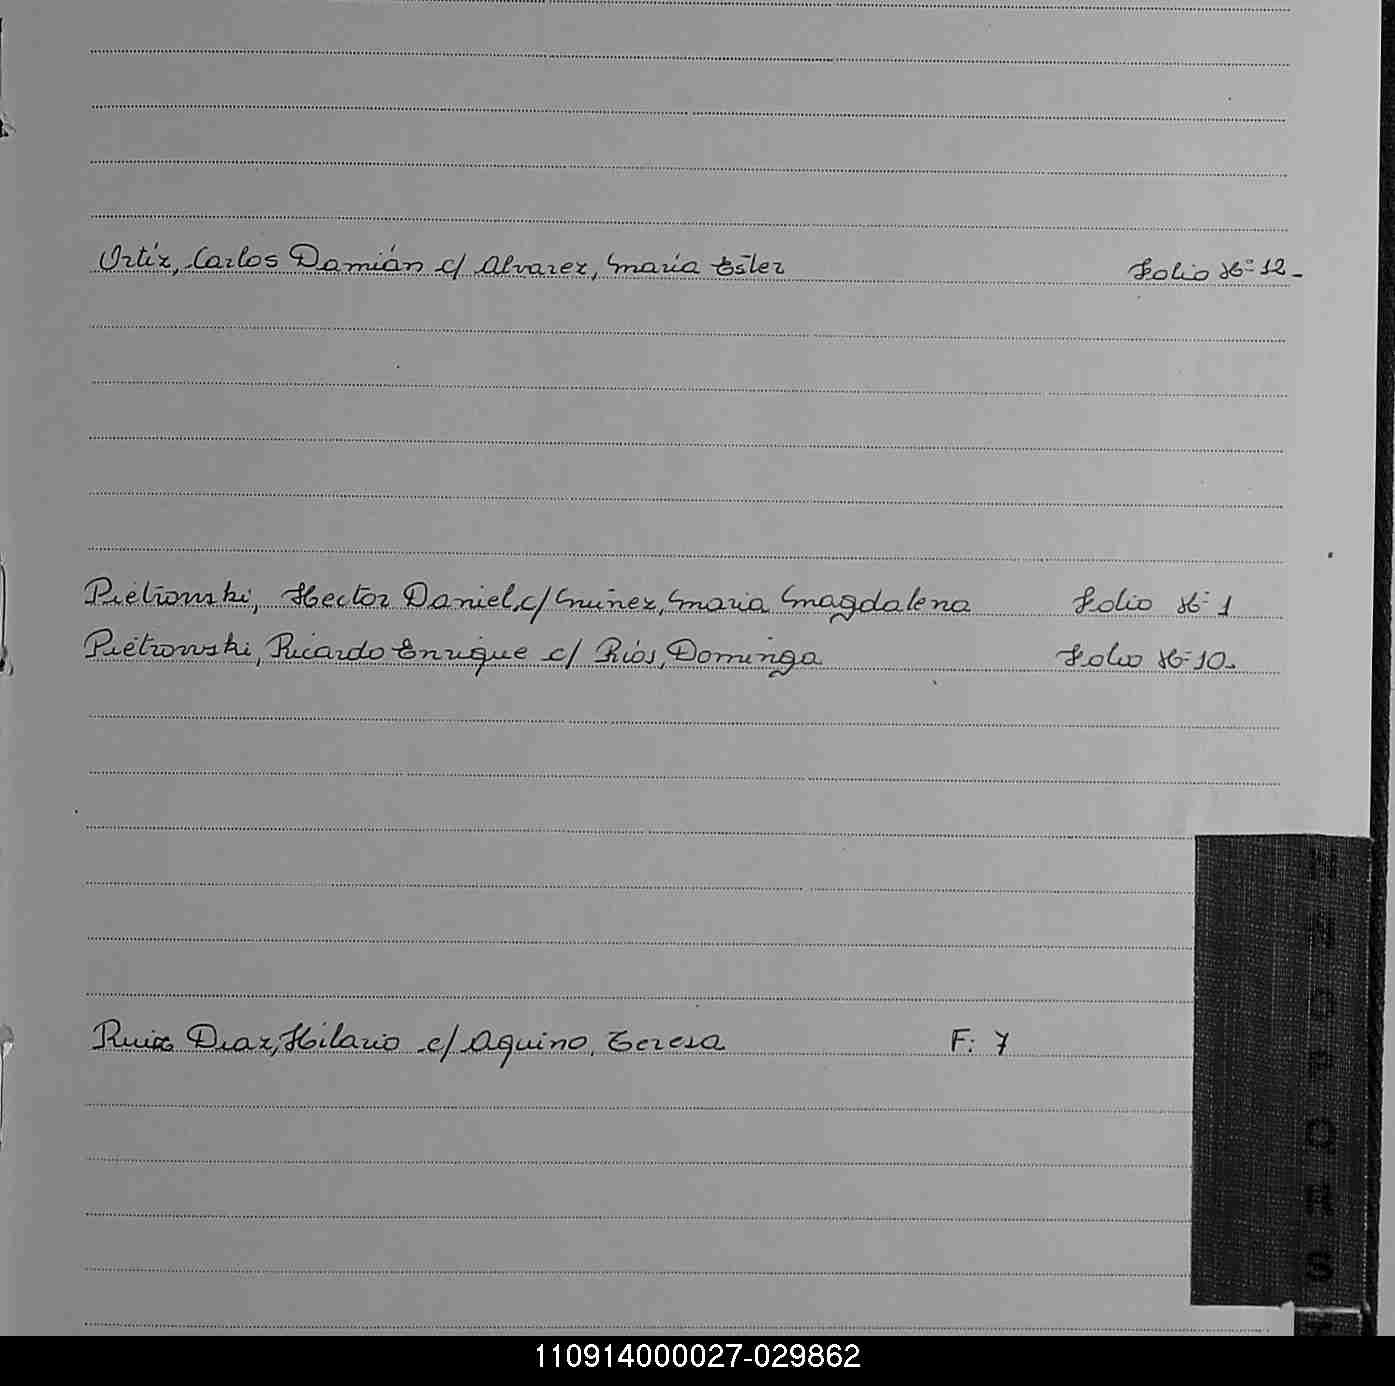 Ortíz, Carlos Damián c/ Alvarez, María Ester Folio Nº 12-
Pietrowski, Hector Daniel c/ Nuñez, Maria Magdalena Folio Nº 1
Pietrowski, Ricardo Enrique c/ Ríos, Dominga Folio Nº 10-
Ruiz Diaz, Hilario c/ Aquino, Teresa F: 7
M
N
O
P
Q
R
S
110914000027-029862